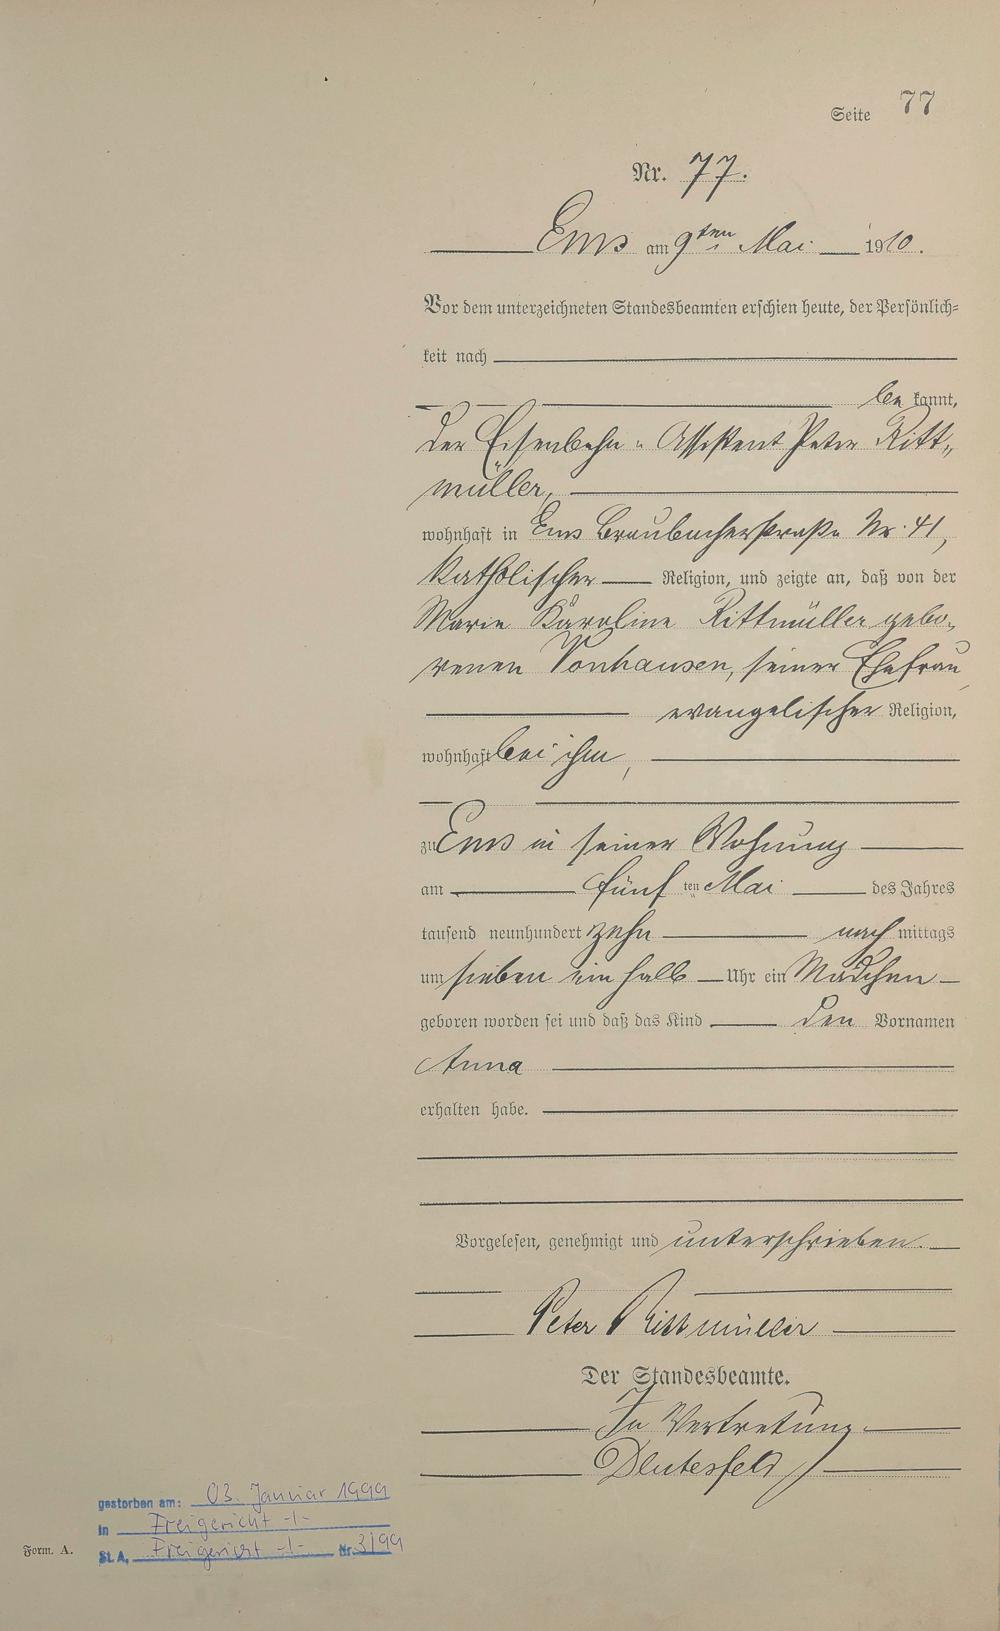 Seite 77
Nr. 77.
Ems am 9ten Mai 1910.
Vor dem unterzeichneten Standesbeamten erschien heute, der Persönlich-
keit nach
be kannt,
der Eisenbahn-Assistent Peter Ritt-
müller,
wohnhaft in Ems Braubacherstraße Nr. 41,
katholischer Religion, und zeigte an, daß von der
Marie Karoline Rittmüller gebo-
renen Vonhausen, seiner Ehefrau,
evangelischer Religion,
wohnhaft bei ihm,
zu Ems in seiner Wohnung
am fünf ten Mai des Jahres
tausend neunhundert zehn nach mittags
um sieben ein halb Uhr ein Mädchen
geboren worden sei und daß das Kind den Vornamen
Anna
erhalten habe.
Vorgelesen, genehmigt und unterschrieben.
Peter Rittmüller
Der Standesbeamte.
In Vertretung
gestorben am: 03. Januar 1999
in Freigericht -1-
St. A. Freigericht -1- Nr. 3/99
Form. A.